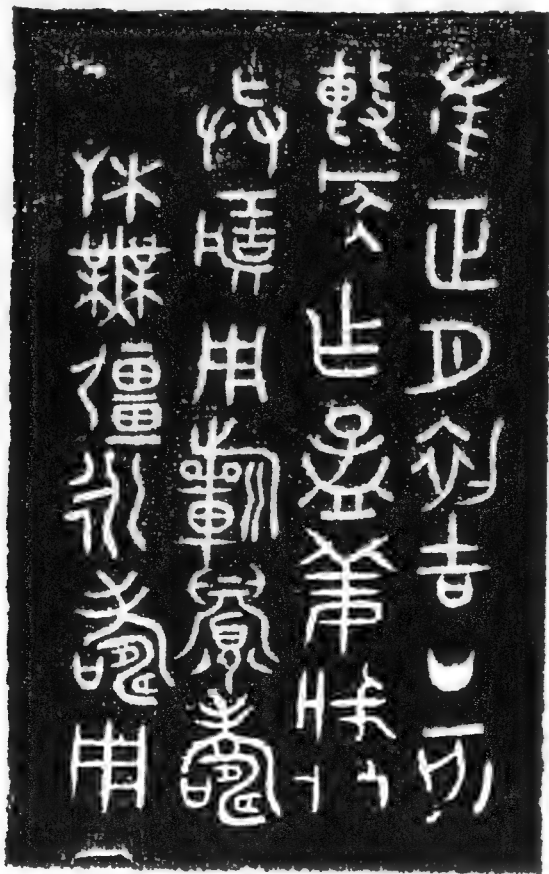 隹正月初吉丁亥
敶侯乍孟姜
用祈眉壽
年無疆永壽用